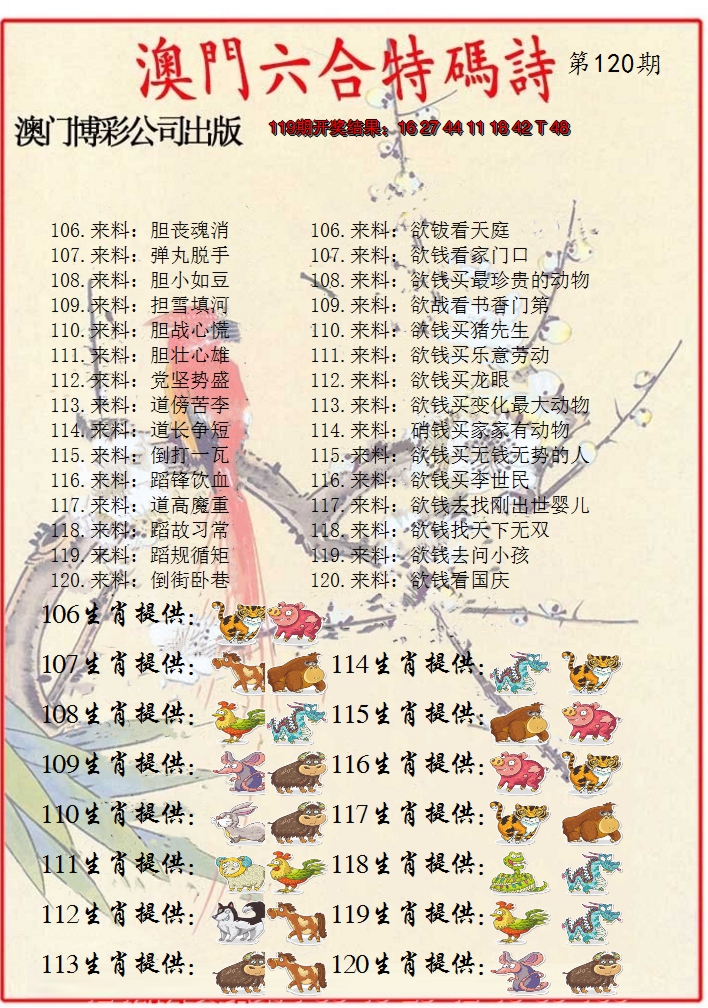 澳門六合特碼詩 第120期
澳门博彩公司出版 119期开奖结果：16 27 44 11 18 42 T 48
106.来料：胆丧魂消 106.来料：欲钹看天庭
107.来料：弹丸脱手 107.来料：欲钱看家门口
108.来料：胆小如豆 108.来料：欲钱买最珍贵的动物
109.来料：担雪填河 109.来料：欲战看书香门第
110.来料：胆战心慌 110.来料：欲钱买猪先生
111.来料：胆壮心雄 111.来料：欲钱买乐意劳动
112.来料：党坚势盛 112.来料：欲钱买龙眼
113.来料：道傍苦李 113.来料：欲钱买变化最大动物
114.来料：道长争短 114.来料：硝钱买家家有动物
115.来料：倒打一瓦 115.来料：欲钱买无钱无势的人
116.来料：蹈锋饮血 116.来料：欲钱买李世民
117.来料：道高魔重 117.来料：欲钱去找刚出世婴儿
118.来料：蹈故习常 118.来料：欲钱找天下无双
119.来料：蹈规循矩 119.来料：欲钱去问小孩
120.来料：倒街卧巷 120.来料：欲钱看国庆
106生肖提供：
107生肖提供： 114生肖提供：
108生肖提供： 115生肖提供：
109生肖提供： 116生肖提供：
110生肖提供： 117生肖提供：
111生肖提供： 118生肖提供：
112生肖提供： 119生肖提供：
113生肖提供： 120生肖提供：